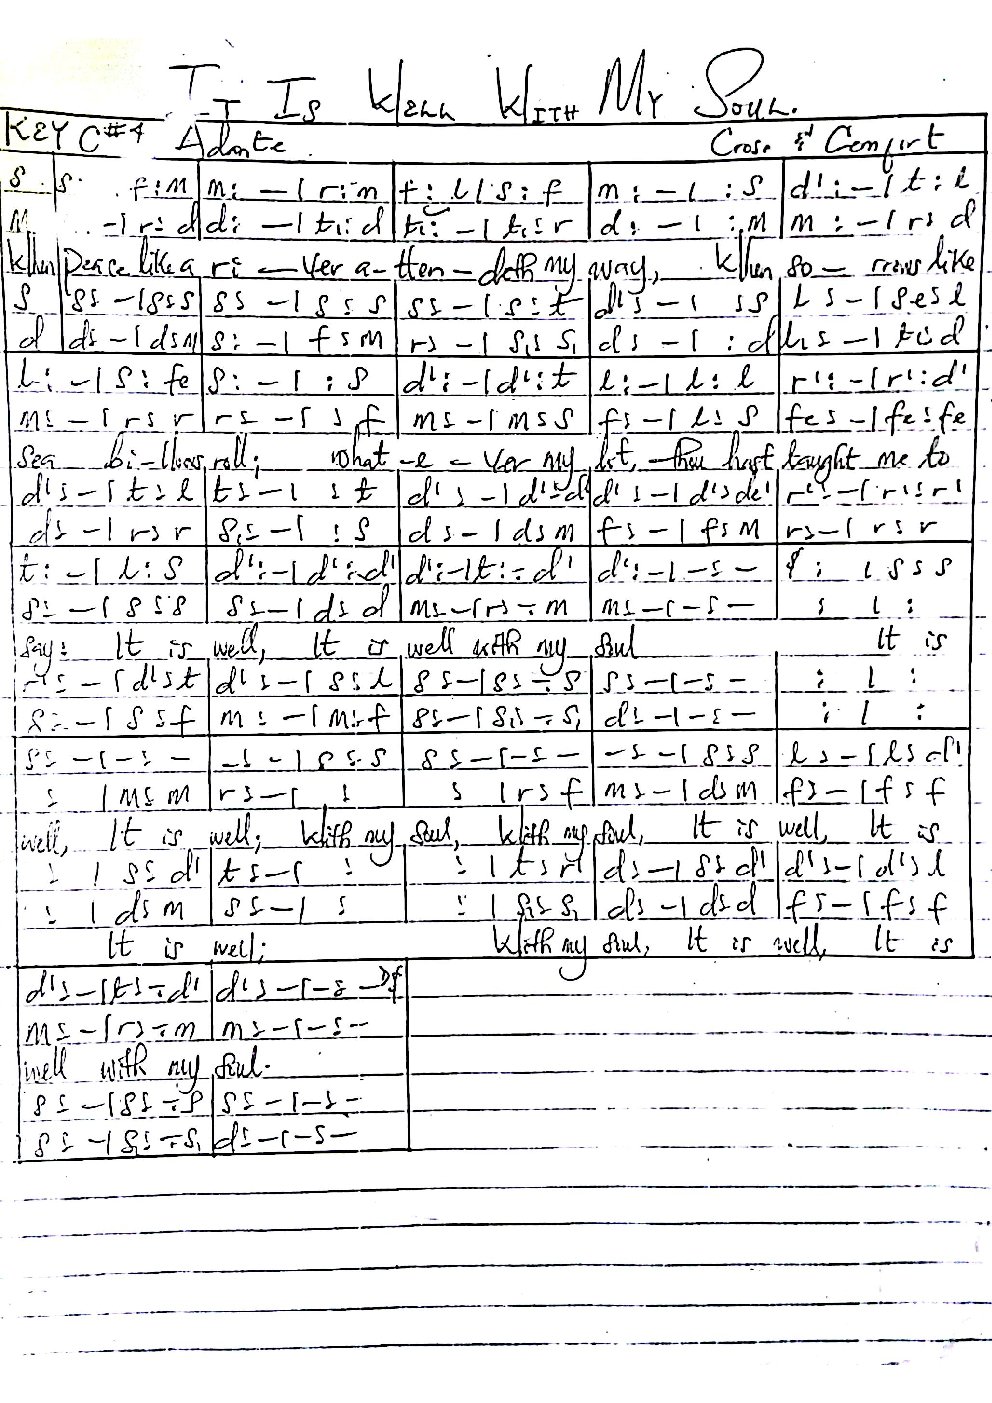 IT IS WELL WITH MY SOUL.
KEY C#4 Adnte. Cross & Comfirt
s s . f:m | m: –| r:m | f: l| s: f | m: –| :s | d': –| t: l
m . –| r: d | d: –| t₁: d | t₁: –| t₁: r | d: –| :m | m: –| r: d
When peace like a ri – ver a-tten-deth my way, When so – rrows like
s | s: –| s:s | s: –| s: s | s: –| s: t | d': –| :s | l: –| se: l
d | d: –| d:m | s: –| f:m | r: –| s₁: s₁ | d: –| : d | l₁: –| t₁: d
l: –| s: fe | s: –| : s | d': –| d': t | l: –| l: l | r': –| r': d'
m: –| r: r | r: –| : f | m: –| m: s | f: –| l: s | fe: –| fe: fe
sea bi-llows roll; what-e-ver my lot, thou hast taught me to
d': –| t: l | t: –| : t | d': –| d': d' | d': –| d': de' | r': –| r': r'
d: –| r: r | s₁: –| : s | d: –| d: m | f: –| f: m | r: –| r: r
t: –| l: s | d': –| d': d' | d': –| t: – d' | d': –| –: – | : | s: s
s: –| s: s | s: –| d: d | m: –| r: – m | m: –| –: – | : | :
say: It is well, It is well with my soul It is
r': –| d': t | d': –| s: l | s: –| s: – s | s: –| –: – | : | :
s: –| s: f | m: –| m: f | s: –| s₁: – s₁ | d: –| –: – | : | :
s: –| –: – | –: –| s: s | s: –| –: – | –: –| s: s | l: –| l: d'
: | m: m | r: –| : | : | r: f | m: –| d: m | f: –| f: f
well, It is well; With my soul, With my soul, It is well, It is
: | s: d' | t: –| : | : | t: r' | d: –| s: d' | d': –| d': l
: | d: m | s: –| : | : | s₁: s₁ | d: –| d: d | f: –| f: f
It is well; With my soul, It is well, It is
d': –| t: – d' | d': –| –: –
m: –| r: – m | m: –| –: –
well with my soul.
s: –| s: – s | s: –| –: –
s: –| s₁: – s₁ | d: –| –: –